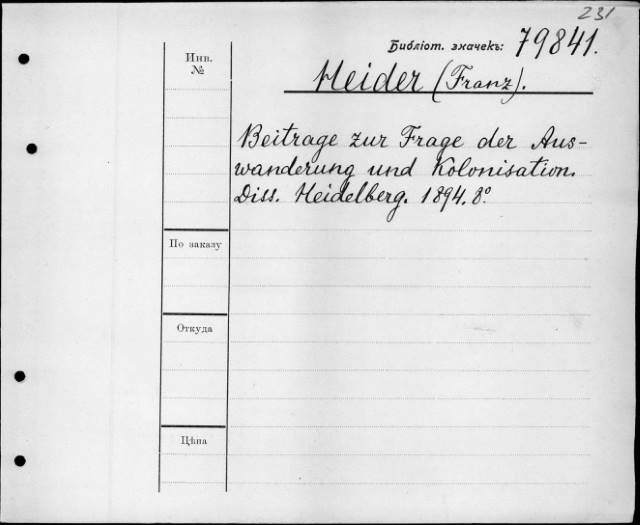 231
Библіот. значекъ: 79841.
Инв.
№
Heider (Franz).
Beitrage zur Frage der Aus-
wanderung und Kolonisation.
Diss. Heidelberg. 1894. 8°
По заказу
Откуда
Цѣна